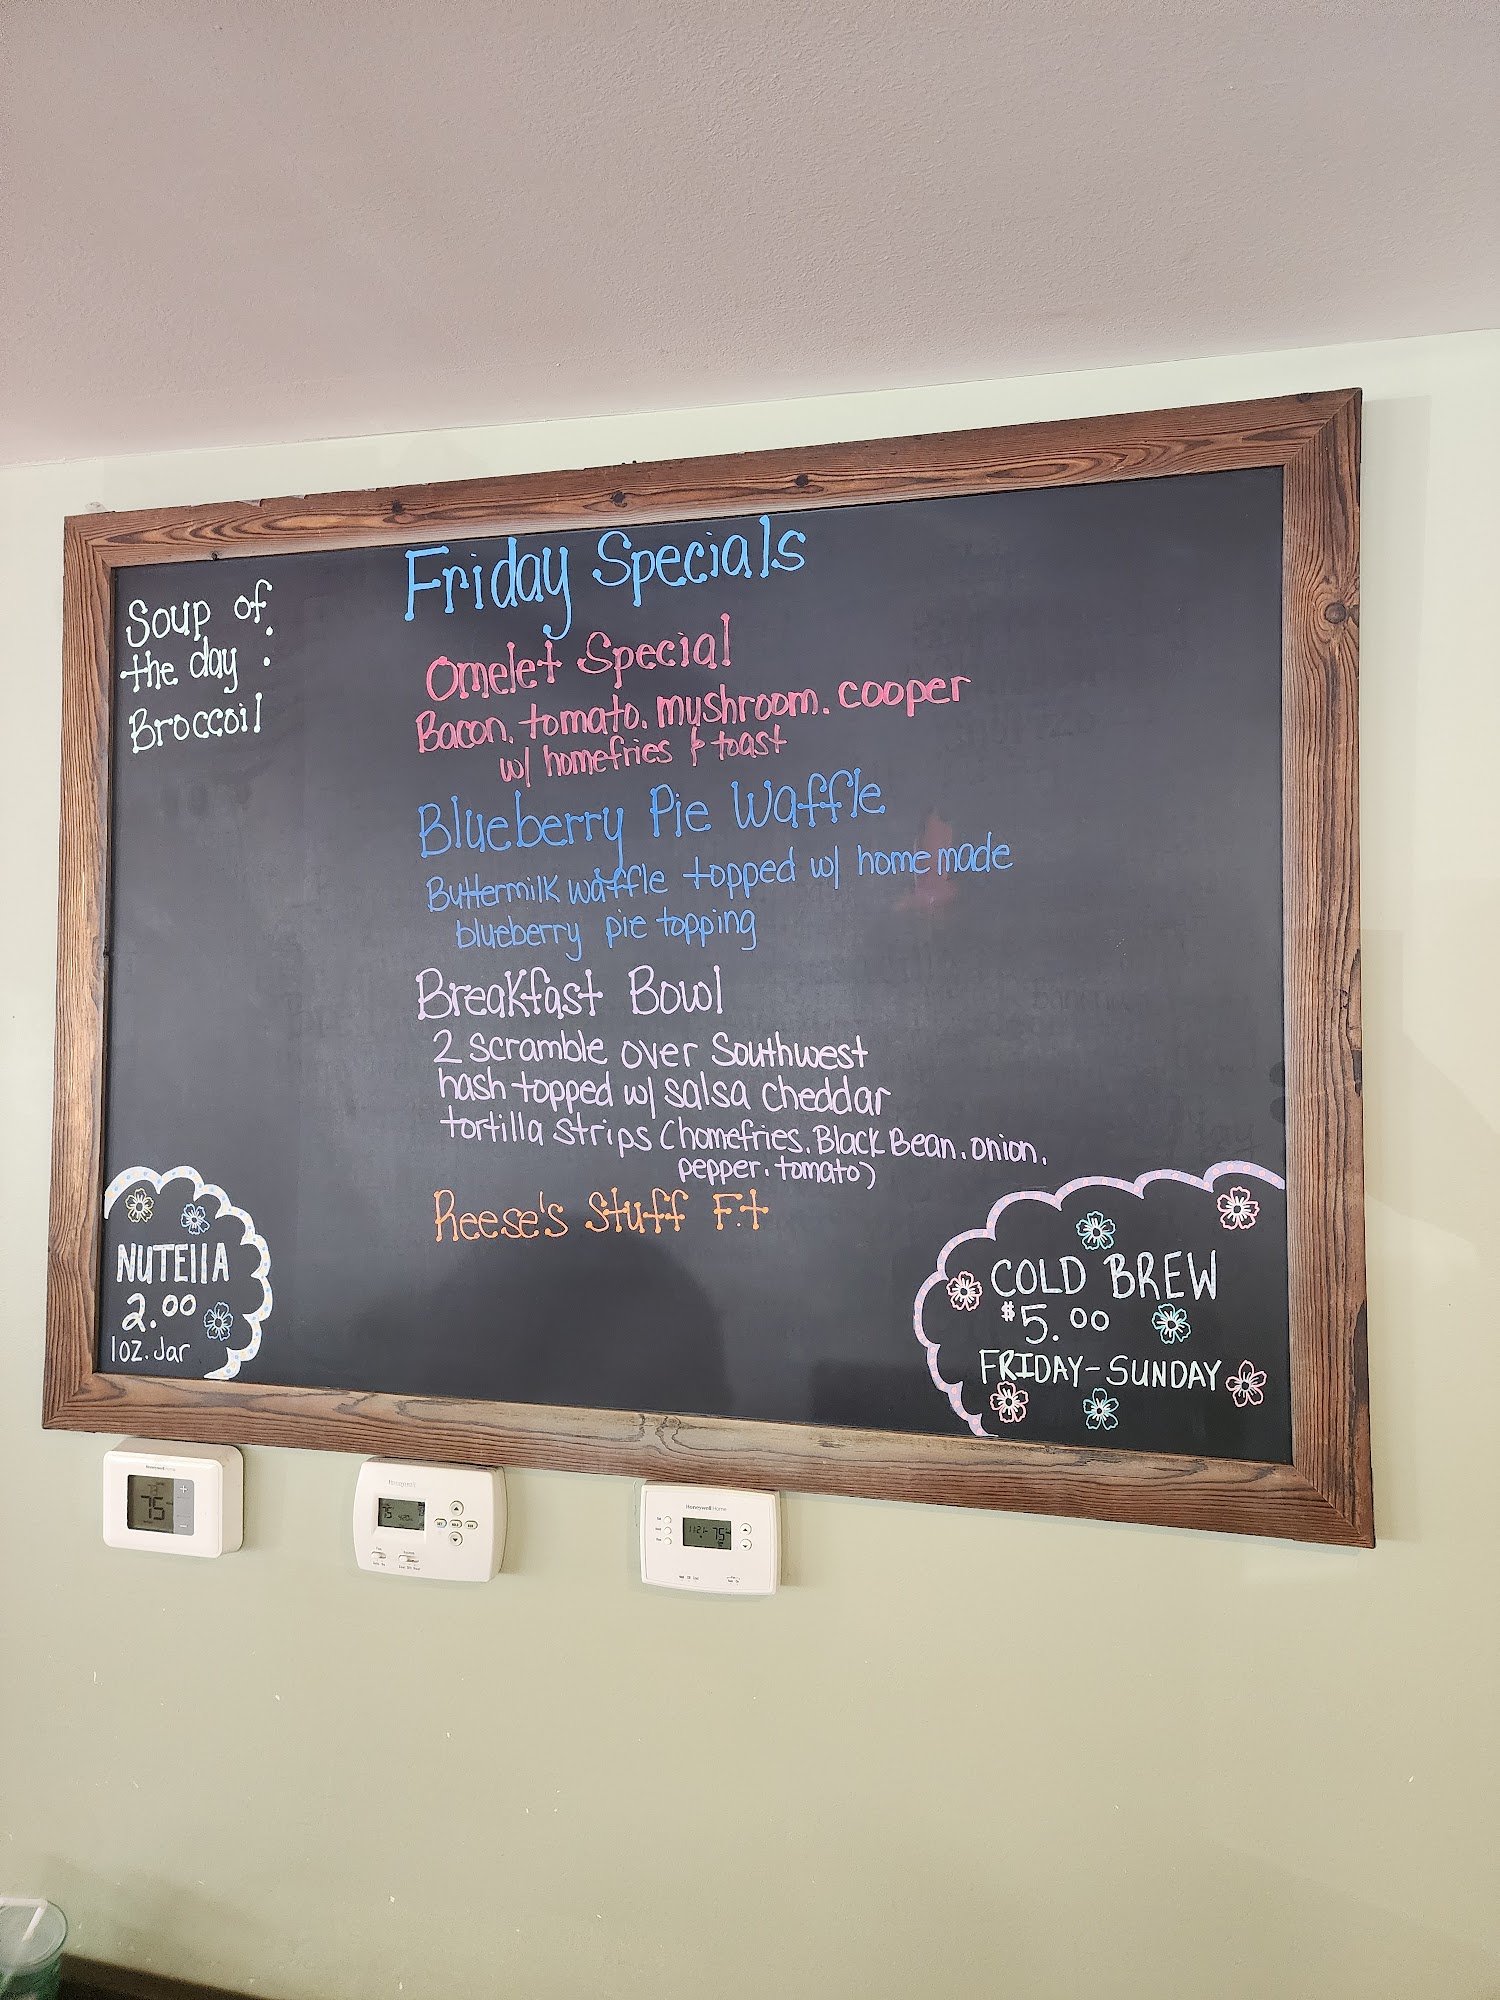 Friday Specials
Soup of
the day :
Broccoil
Omelet Special
Bacon, tomato, mushroom, cooper
w/ homefries & toast
Blueberry Pie Waffle
Buttermilk waffle topped w/ homemade
blueberry pie topping
Breakfast Bowl
2 scramble over Southwest
hash topped w/ salsa cheddar
tortilla strips (homefries, Black Bean, onion,
pepper, tomato)
Reese's Stuff F.t
NUTEllA
2.00
1oz. Jar
COLD BREW
$5.00
FRIDAY-SUNDAY
Honeywell Home
75
Honeywell
75
Honeywell Home
75